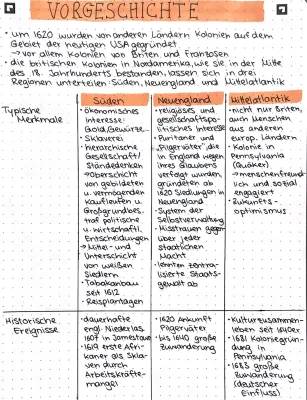 VORGESCHICHTE
• um 1620 wurden von anderen Ländern Kolonien auf dem
Gebiet der heutigen USA gegründet
→ vor allem Kolonien von Briten und Franzosen
• die britischen Kolonien in Nordamerika, wie sie in der Mitte
des 18. Jahrhunderts bestanden, lassen sich in drei
Regionen unterteilen: Süden, Neuengland und Mittelatlantik
Typische
Merkmale
Süden
• ökonomisches
Interesse:
Gold, Gewürze...
• Sklaverei
• hierarchische
Gesellschaft/
Ständedenken
→ Oberschicht
von gebildeten
u. vermögenden
Kaufleuten u.
Großgrundbes.
traf politische
u. wirtschaftl.
Entscheidungen
→ Mittel- und
Unterschicht
von weißen
Siedlern
• Tabakanbau
seit 1612
• Reisplantagen
Neuengland
• religiöses und
gesellschaftspo-
litisches Interesse
• Puritaner und
„Pilgerväter" die
in England wegen
ihres Glaubens
verfolgt wurden,
gründeten ab
1620 Siedlungen in
Neuengland
• System der
Selbstverwaltung
• Misstrauen gegen-
über jeder
staatlichen
Macht
• lehnten zentra-
lisierte Staats-
gewalt ab
Mittelatlantik
• nicht nur Briten,
auch Menschen
aus anderen
europ. Ländern
• Kolonie in
Pennsylvania
(Quäker)
→ menschenfreund-
lich und sozial
engagiert
• Zukunfts-
optimismus
Historische
Ereignisse
• dauerhafte
engl. Niederlas.
1607 in Jamestown
• 1619 erste Afri-
kaner als Skla-
ven durch
Arbeitskräfte-
mangel
• 1620 Ankunft
Pilgerväter
• bis 1640 große
Zuwanderung
• Kulturzusammen-
leben seit 1640er
• 1681 Koloniegrün-
dung in
Pennsylvania
• 1683 große
Zuwanderung
(deutscher
Einfluss)